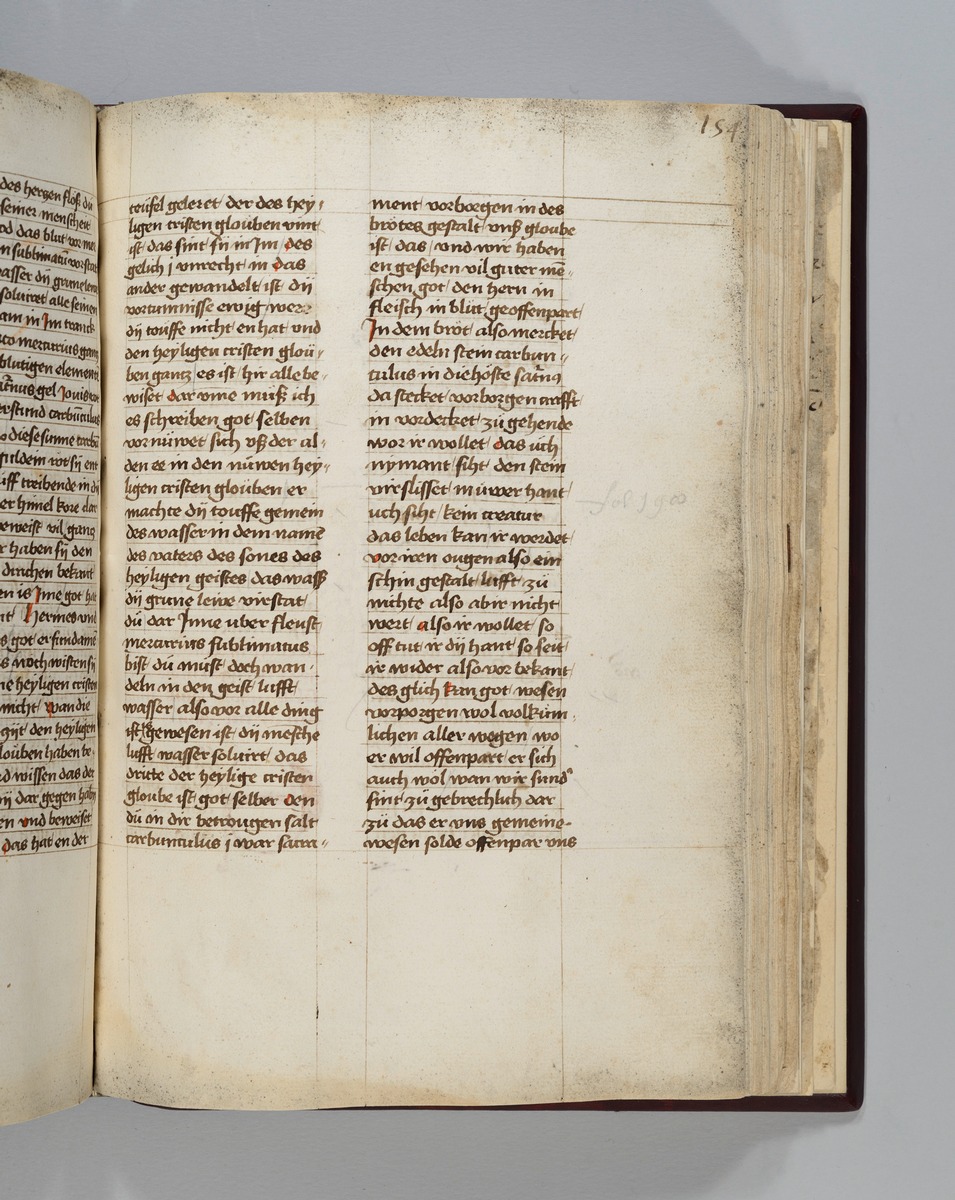 des herzen flos du
seiner menscheit
das blut vor
alle seinen
am in Jm tranck
mercurius
blutigen element
gel Jouis
verstund carbunculus
diese sunne
guldein rot sy
uff treibende in
er himel kore dar
beweist vil ganz
r haben sy den
bekant
Jme got hat
Hermes vnd
got er
noch wisten sy
ne heyligen cristen
nicht wan die
den heyligen
louben haben be
d wissen das der
dar gegen haben
en vnd beweiset
das hat en der
154
teufel geleret der des hey
ligen cristen glouben vint
ist das sint sy in Jm des
gelich j vnrecht in das
ander gewandelt ist dy
vortumnisse ewig wer
dy touffe nicht en hat vnd
den heyligen cristen glou
ben gantz es ist hir alle be
wiset dar vme muß ich
es schreiben got selben
vor nuwet sich vß der al
den ee in den nuwen hey
ligen cristen glouben er
machte dy touffe gemein
des wasser in dem namē
des vaters des sones des
heyligen geistes das wass
dy grune lewe virstat
du dar Jnne vber fleust
mercurius sublimatus
bist du must doch wan
deln in den geist lufft
wasser also vor alle ding
ist gewesen ist dy mesche
lufft wasser soluirt das
dritte der heylige cristen
gloube ist got selber den
du in dir betrougen salt
carbunculus j war sacra
ment vorborgen in des
brotes gestalt vnß gloube
ist das vnd wir haben
en gesehen vil guter mē
schen got den hern in
fleisch in blut geoffenpart
In dem brot also mercket
den edeln stein carbun
culus in die hoste
da stecket vorborgen crafft
in vordecket zu gehende
wor ir wollet das uch
nymant siht den stein
virslisset in uwer hant
uch siht kein creatur
das leben kan ir werdet
vor iren ougen also ein
schin gestalt lufft zu
nichte also abir nicht
wert also ir wollet so
off tut ir dy hant so seit
ir wider also vor bekant
des glich kan got wesen
vorporgen wol volkum
lichen aller wegen wo
er wil offenpart er sich
auch wol wan wir sund
sint zu gebrechlich dar
zu das er vns gemeine
wesen solde offenpar vns